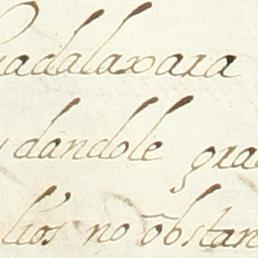 Guadalaxara
dandole gra
lios no obstan